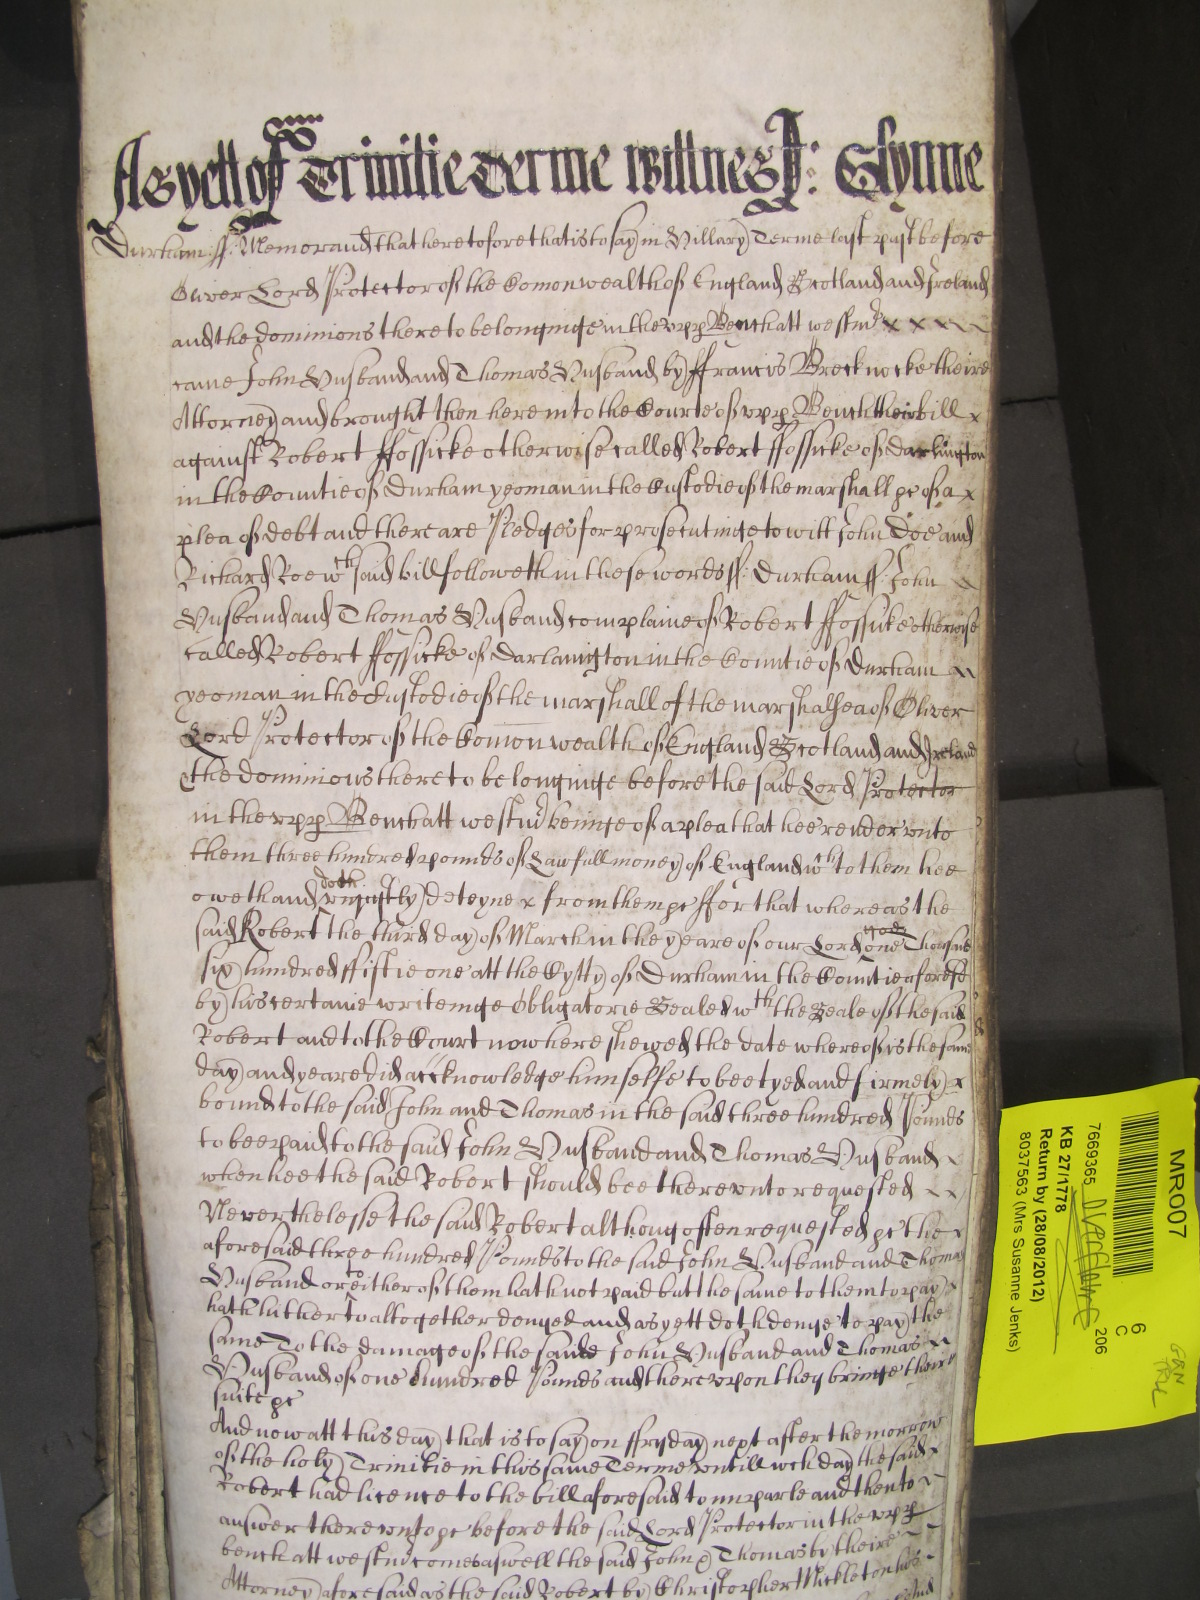 As yett of Trinitie Terme Wittnes: Glynne
Durham ss: Memorand that heretofore that is to say in Hillary Terme last past before
Oliver Lord Protector of the Comonwealth of England Scotland and Ireland
and the dominions thereto belonginge in the upp Bench att westmr x x x
came John Husband and Thomas Husband by Francis Brecknocke theire
Attorney and brought then here into the Courte of upp Bench their bill x
against Robert ffossicke otherwise called Robert ffossicke of Darlington
in the Countie of Durham yeoman in the Custodie of the marshall &c of a x
plea of debt and there are Pledges for prosecutinge to witt John Doe and
Richard Roe wch said bill followeth in these words ss: Durham ss: John
Husband and Thomas Husband complaine of Robert ffossicke otherwise
called Robert ffossicke of Darlanigton in the Countie of Durham
yeoman in the Custodie of the marshall of the marshalsea of Oliver
Lord Protector of the Comonwealth of England Scotland and Ireland
the dominions thereto belonginge before the said Lord Protector
in the upp Bench att westmr beinge of a plea that hee render unto
them three hundred pounds of Lawfull money of England wch to them hee
oweth and doth uniustly deteyne x from them &c ffor that whereas the
said Robert the third day of March in the yeare of our Lord god one Thousand
six hundred fiftie one att the Cytty of Durham in the Countie aforesd
by his certaine writeinge Obligatorie Sealed wth the Seale of the said
Robert and to the Court now here shewed the date whereof is the same
day and yeare did acknowledge himselfe to bee tyed and firmely x
bound to the said John and Thomas in the said three hundred Pounds
to bee paid to the said John Husband and Thomas Husband
when hee the said Robert should bee thereunto requested
Neverthelesse the said Robert althoug often requested &c the
aforesaid three hundred Pounds to the said John Husband and Thomas
Husband or to either of them hath not paid butt the same to them to pay
hath hitherto altogether denyed and as yett doth denye to pay the
same To the damage of the said John Husband and Thomas
Husband of one hundred Pounds and thereupon they bringe their
suite &c
And now att this day that is to say on ffryday next after the morrow
of the holy Trinitie in this same Terme untill wch day the said
Robert had licence to the bill aforesaid to imparle and then to
answer thereunto &c before the said Lord Protector in the upp
bench att westmr comes aswell the said John & Thomas by theire
Attorney aforesaid as the said Robert by Christopher Mickleton his
MR007
6
C
7669365
206
KB 27/1778
Return by (28/08/2012)
8037563 (Mrs Susanne Jenks)